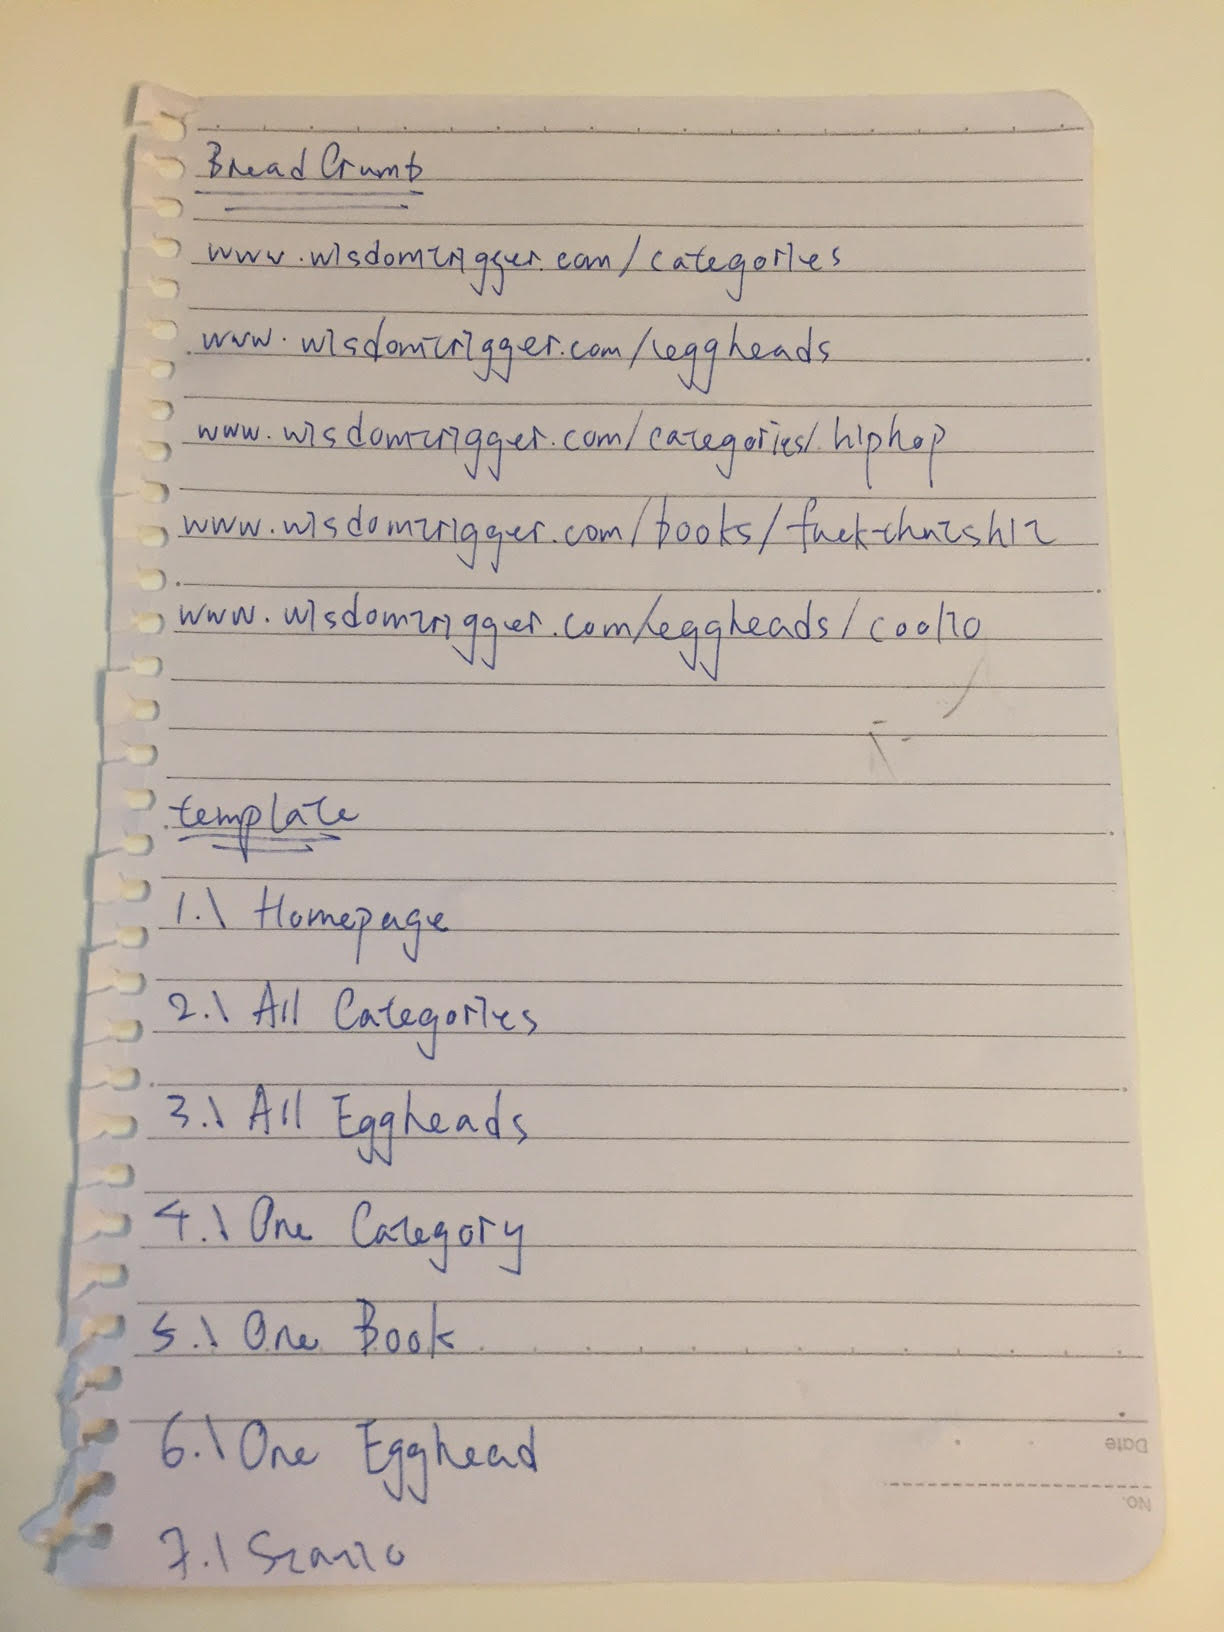 Bread Crumb
www.wisdomtrigger.com/categories
www.wisdomtrigger.com/eggheads
www.wisdomtrigger.com/categories/hiphop
www.wisdomtrigger.com/books/fuck-thatshit
www.wisdomtrigger.com/eggheads/coolio
template
1.\ Homepage
2.\ All Categories
3.\ All Eggheads
4.\ One Category
5.\ One Book
6.\ One Egghead
7.\ Static
Date
No.